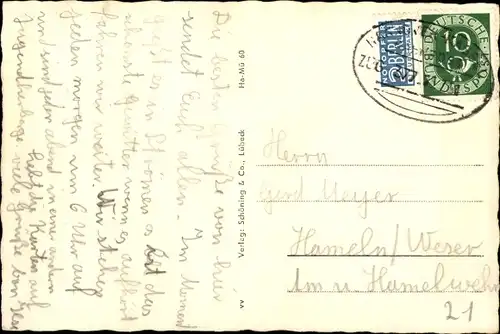 Die besten Grüße von hier
sendet Euch allen. Im Moment
gießt es in Strömen es ist das
schönste Gewitter wenn es aufhört
fahren wir weiter. Wir stehen
jeden morgen um 6 Uhr auf
und sind jeden abend in einer andern
Jugendherberge. viele Grüße
hebt die Karten auf
Ha-Mü 60
Verlag: Schöning & Co., Lübeck
VV
NOTOPFER
2 BERLIN
STEUERMARKE
DEUTSCHE
10
BUNDESPOST
ZUG
Herrn
Gerd Meyer
Hameln/Weser
Am Hamelwehr
21